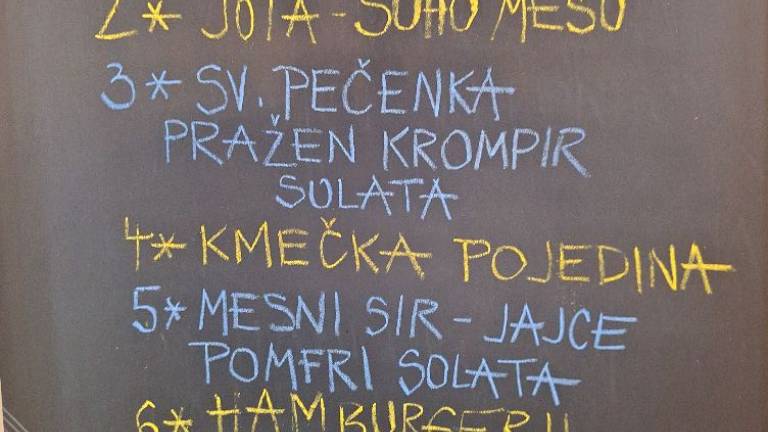 2* JOTA - SUHO MESO
3* SV. PEČENKA
PRAŽEN KROMPIR
SOLATA
4* KMEČKA POJEDINA
5* MESNI SIR - JAJCE
POMFRI SOLATA
6* HAMBURGERJI